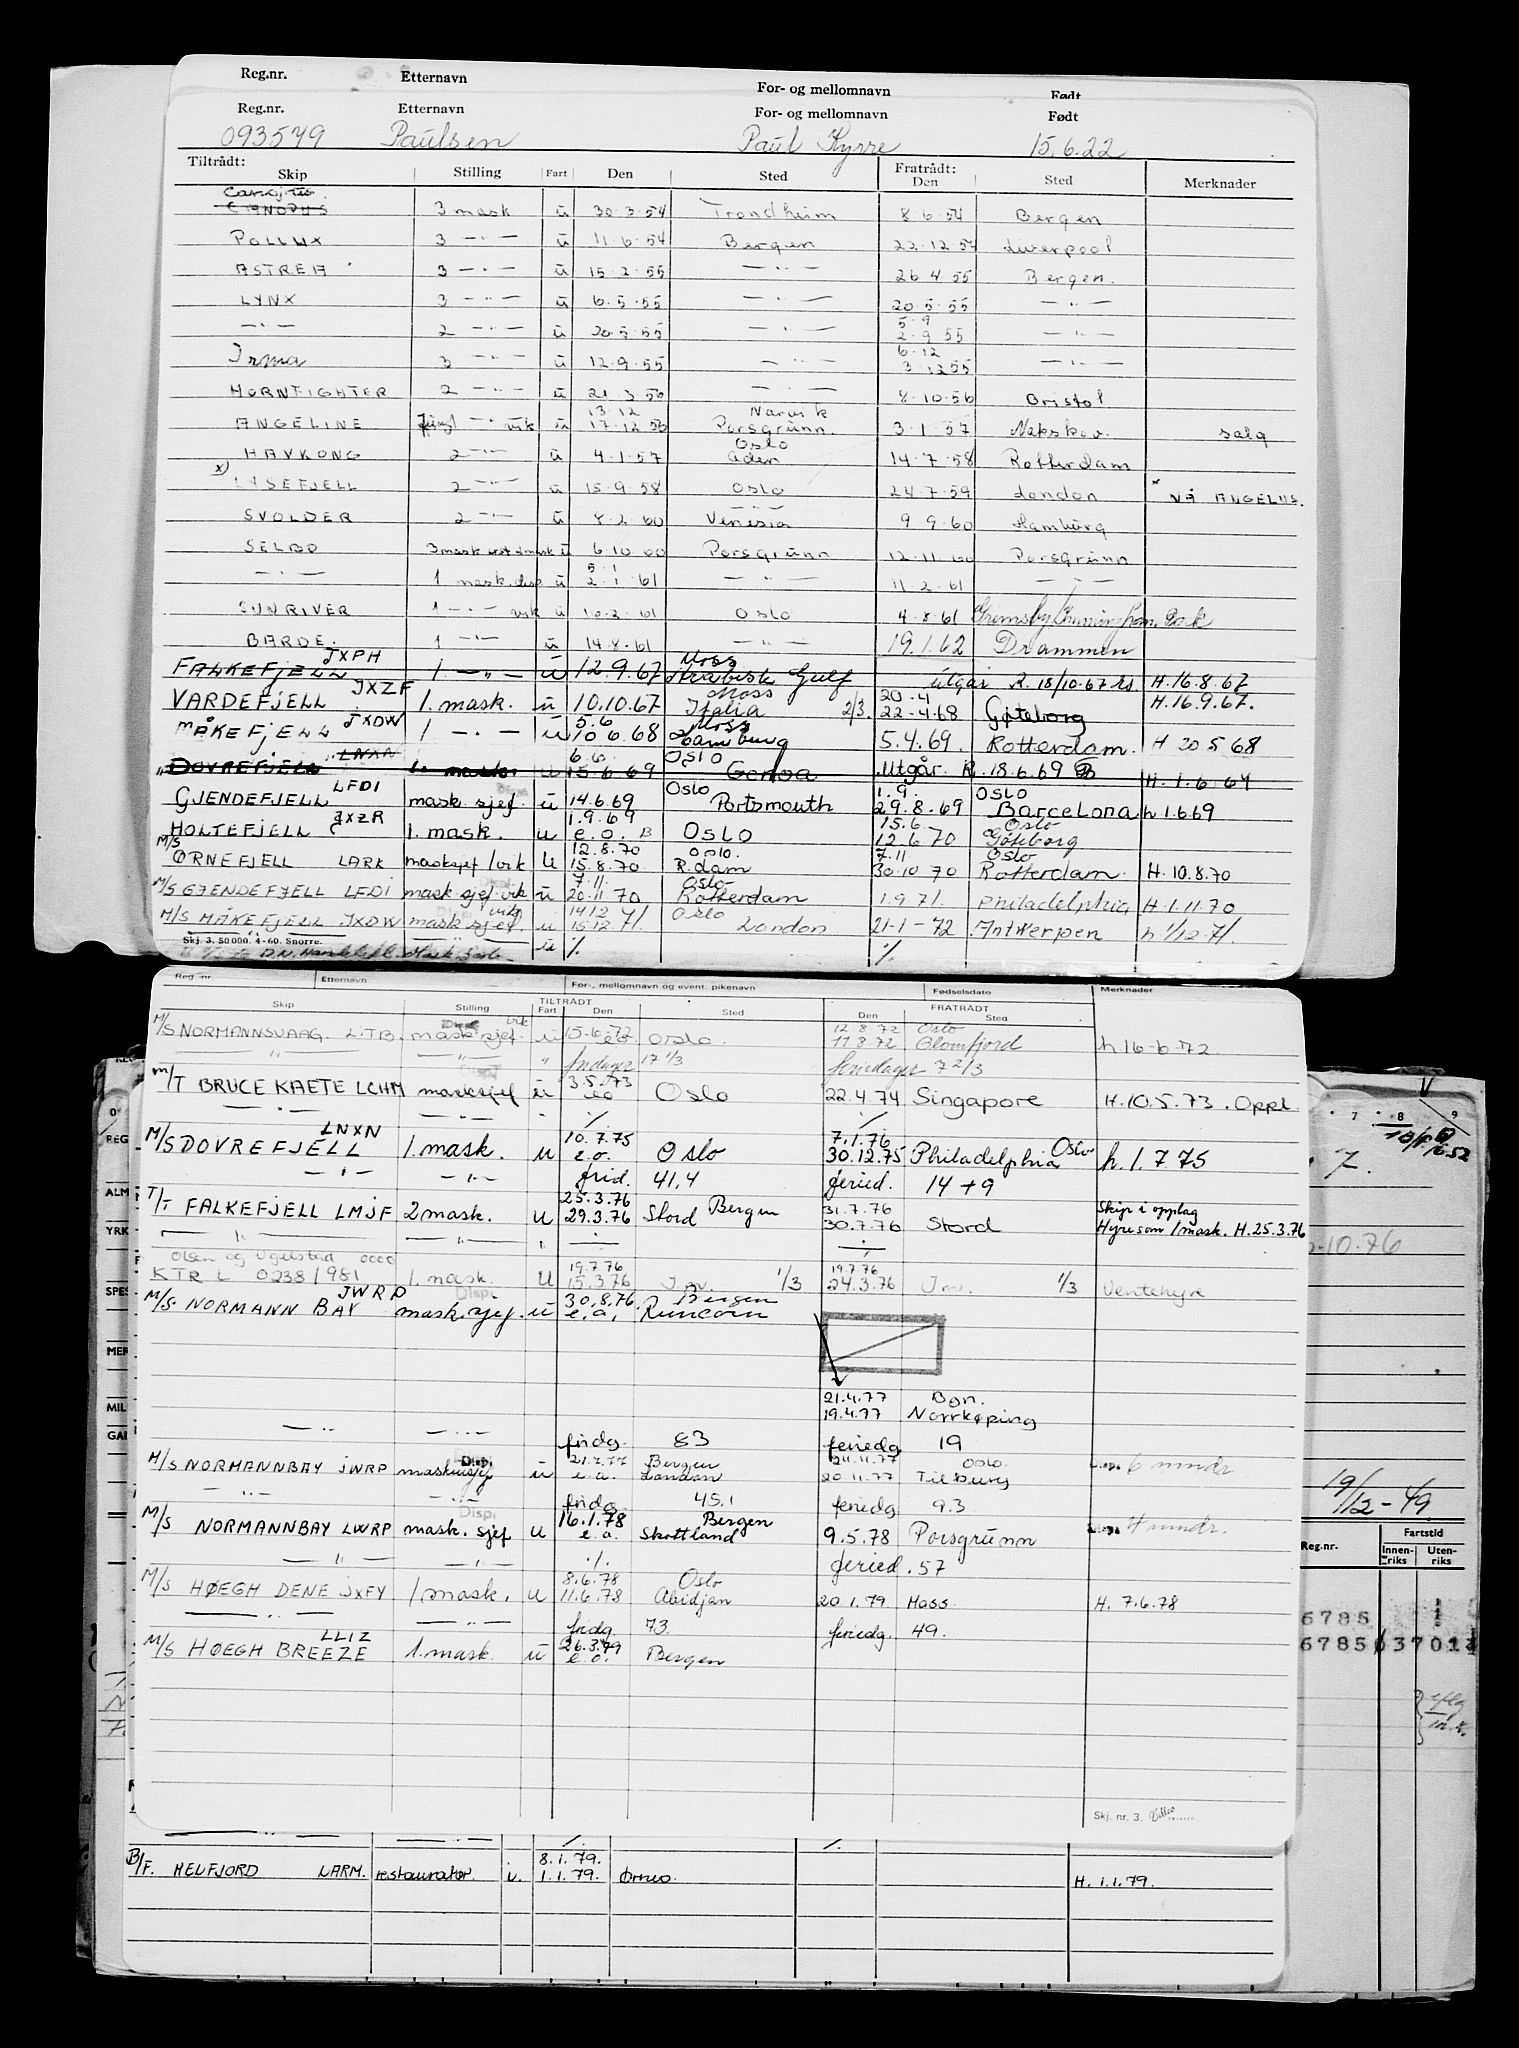 Reg.nr. Etternavn For- og mellomnavn Født
Reg.nr. Etternavn For- og mellomnavn Født
093579 Paulsen Paul Kyrre 15.6.22
Tiltrådt: Skip Stilling Fart Den Sted Fratrådt: Den Sted Merknader
3 mask ü 30.3.54 Trondheim 8.6.54 Bergen
POLLUX 3 —"— ü 11.6.54 Bergen 22.12.54 Liverpool
ASTREA 3 —"— ü 15.2.55 —"— 26.4.55 Bergen.
LYNX 3 —"— ü 6.5.55 —"— 20.5.55 —"—
5.9
—"— 2 —"— ü 20.5.55 —"— 2.9.55 —"—
6.12
Irma 3 —"— ü 12.9.55 —"— 3.12.55 —"—
HORNFIGHTER 2 —"— ü 21.3.56 —"— 8.10.56 Bristol
13.12 Narvik
ANGELINE —"— vik ü 17.12.56 Porsgrunn. 3.1.57 Nakskov. salg
Oslo
HAVKONG 2 —"— ü 4.1.57 Aden 14.7.58 Rotterdam
x) LYSEFJELL 2 —"— ü 15.9.58 Oslo 24.7.59 London * NÅ ANGELUS.
SVOLDER 2 —"— ü 8.2.60 Venesia 9.9.60 Hamburg
SELBO 3 mask ü 6.10.60 Porsgrunn 12.11.60 Porsgrunn
5.1
—"— 1 mask. disp ü 2.1.61 —"— 11.2.61 —"—
SUNRIVER 1 —"— vik ü 16.2.61 Oslo 4.8.61 Grimsby
BARDE. 1 —"— ü 14.8.61 —"— 19.1.62 Drammen
JXPH Moss
FALKEFJELL 1 —"— ü 12.9.67 Arabisk Gulf utgår R. 18/10.67 H.16.8.67
JXZF Moss 20.4
VARDEFJELL 1. mask. ü 10.10.67 Italia 2/3. 22-4.68 Gøteborg H.16.9.67.
JXDW 5.6 Moss
MÅKEFJELL 1 —"— ü 10 6.68 Hamburg 5.4.69. Rotterdam. H 20 5 68
LNXN 6.6 OSLO
DOVREFJELL 1. mask. ü 15.6 69 Genoa Utgår. R. 18.6.69 H.1.6.69
LFDI Oslo 1.9. OSLO
GJENDEFJELL mask. sjef. ü 14.6.69 Portsmouth 29.8.69 Barcelona h 1.6.69
JXZR 1.9.69 15.6. Oslo
HOLTEFJELL 1. mask. u e.o. B OSLO 12.6.70 Göteborg
M/S 12.8.70 Oslo. 7.11. Oslo
ØRNEFJELL LARK masksjef/vik U 15.8.70 R.dam 30.10 70 Rotterdam. H.10.8.70
7.11. Oslo
M/S GJENDEFJELL LFDI mask sjef. vik ü 20.11 70 Rotterdam 1.9.71. Philadelphia H.1.11.70
14.12 71. Oslo
M/S MÅKEFJELL JXDW mask sjef. u 15.12 London 21-1-72 Antwerpen h 1/12-71.
Skj. 3. 50 000. 4-60. Snorre.
Reg. nr. Etternavn For-, mellomnavn og event. pikenavn Fødselsdato Merknader
TILTRÅDT FRATRÅDT
Skip Stilling Fart Den Sted Den Sted
12.8.72 Oslo
M/S NORMANNSVAAG. LITB. mask sjef. vik ü 15-6-72 eo Oslo. 11.8.72 Glomfjord h 16-6-72
—"— —"— " fridager 17 1/3 feriedager 7 2/3
3.5.73
M/T BRUCE KAETE LCHM masksjef ü eo Oslo 22.4.74 Singapore H.10.5.73. Oppl.
—"— —"— " ./. ./.
LNXN 10.7.75 7.1.76 Oslo
M/S DOVREFJELL 1. mask. u e.o. Oslo 30.12.75 Philadelphia h. 1.7 75
—"— —"— frid. 41,4 feried. 14 + 9
25.3.76 31.7.76 Skip i opplag
T/T FALKEFJELL LMJF 2 mask. U 29.3.76 Stord Bergen 30.7.76 Stord Hyre som 1 mask. H.25.3.76
—"— —"— " ./. ./.
Olsen og Ugelstad 0000 19.7.76 19.7.76
KTR L 0238/981 1. mask. U 15.3.76 1/3 24.3.76 1/3 Ventehyre
JWRP Disp. 30.8.76. Bergen
M/S. NORMANN BAY mask. sjef. ü e.o. Runcorn
21.4.77 Bgn.
19.4.77 Norrkøping
—"— —"— fridg. 83 feriedg 19
Disp. 21.7.77 Bergen 24.11.77 Oslo.
M/S NORMANNBAY JWRP maskinsjef ü e.o. London 20.11.77 Tilburg Disp. 6 mndr
—"— —"— fridg. 45.1 feriedg 9.3
Disp. 16.1.78 Bergen
M/S NORMANNBAY LWRP mask. sjef u e.o. Skottland 9.5.78 Porsgrunn Disp. 4 mndr.
—"— —"— ./. feried. 57
8.6.78 Oslo
M/S HØEGH DENE JXFY 1 mask. u 11.6.78 Abidjan 20.1.79 Moss. H. 7.6.78
—"— —"— fridg. 73 feriedg. 49.
LLIZ 26.3.79
M/S HØEGH BREEZE 1. mask. ü e.o. Bergen
Skj. nr. 3.
—"— —"— ./. ./.
8.1.79.
B/F. HELFJORD LARM. restauratør. i. 1.1.79. H. 1.1.79.
0
REG
ALM
YRK
SPES
MER
MIL
7 8 9
7.
10.76
19/12-49
Reg.nr. Fartstid
Innenriks Utenriks
6785
6785 037014